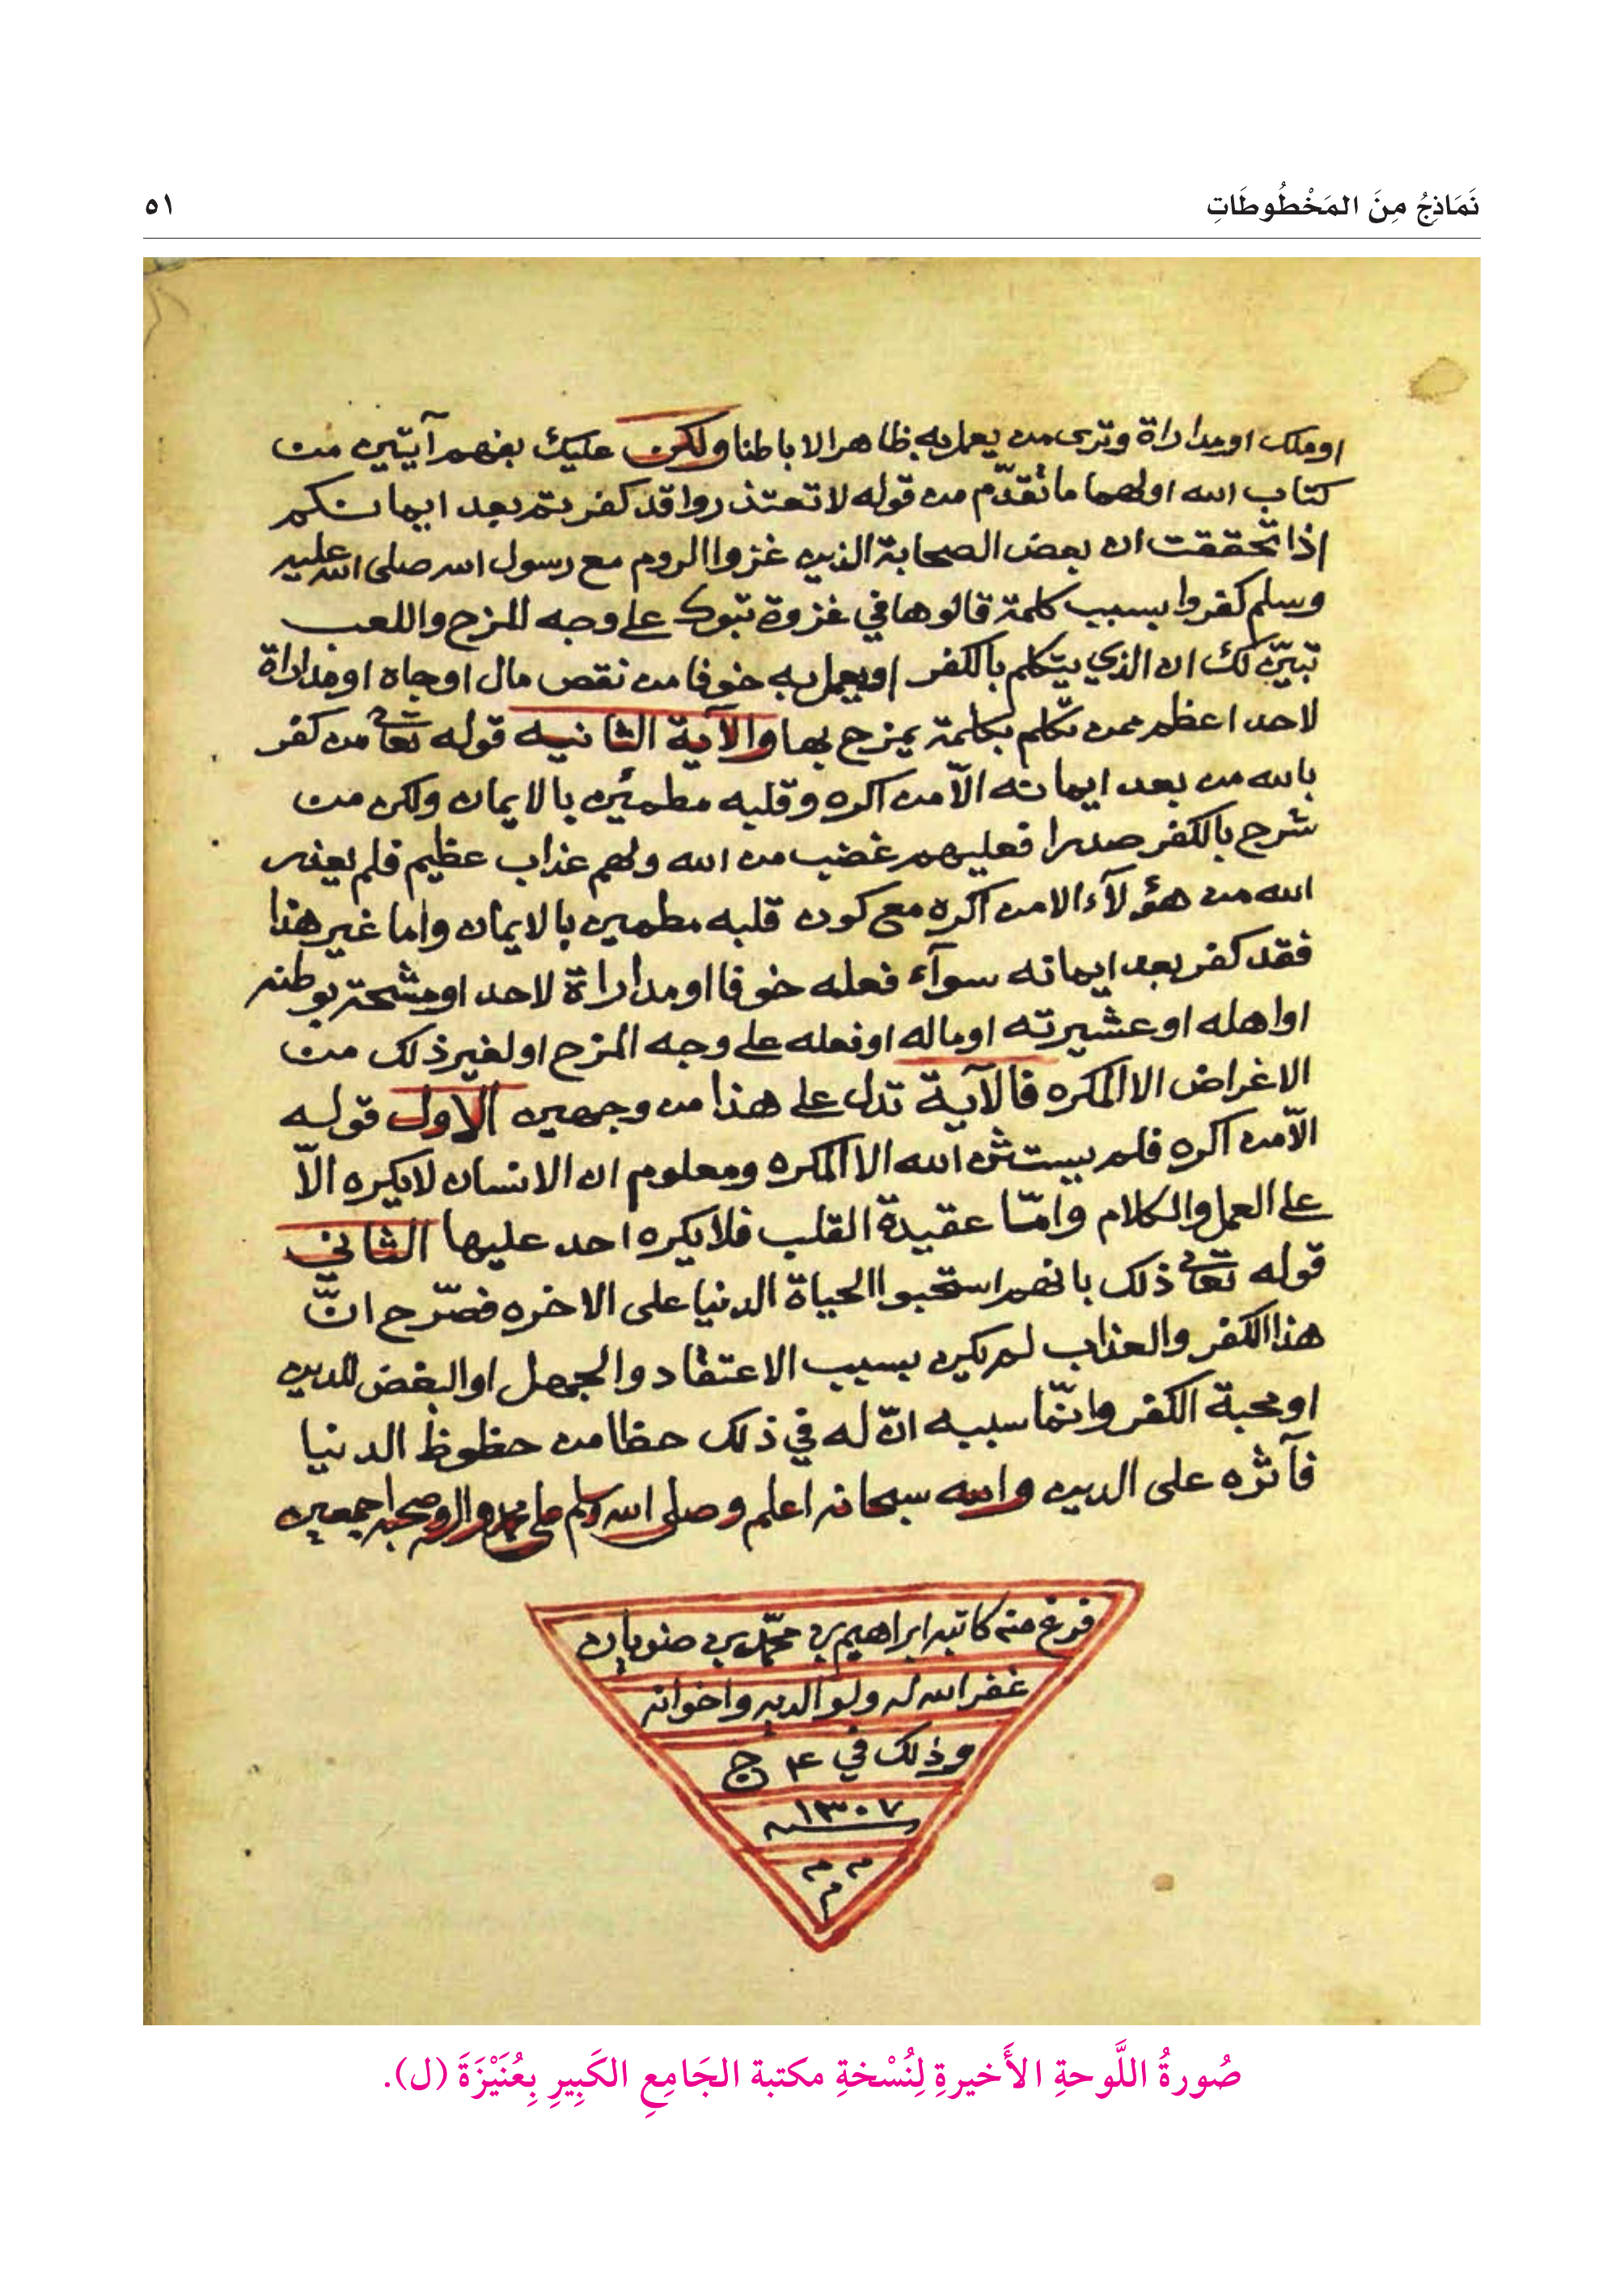 نَمَاذِجُ مِنَ المَخْطُوطَاتِ
٥١
او ملك او مداراة وترى من يعمل به ظاهرا لا باطنا ولكن عليك بفهم آيتين من
كتاب الله اولهما ما تقدّم من قوله لا تعتذروا قد كفرتم بعد ايمانكم
اذا تحققت ان بعض الصحابة الذين غزوا الروم مع رسول الله صلى الله عليه
وسلم كفروا بسبب كلمة قالوها في غزوة تبوك على وجه المزح واللعب
تبيّن لك ان الذي يتكلم بالكفر او يعمل به خوفا من نقص مال او جاه او مداراة
لاحد اعظم ممن تكلم بكلمة يمزح بها والآية الثانيه قوله تعالى من كفر
بالله من بعد ايمانه الاّ من اكره وقلبه مطمئن بالايمان ولكن من
شرح بالكفر صدرا فعليهم غضب من الله ولهم عذاب عظيم فلم يعذر
الله من هؤلآء الا من اكره مع كون قلبه مطمين بالايمان واما غير هذا
فقد كفر بعد ايمانه سوآء فعله خوفا او مداراة لاحد او مشحة بوطنه
او اهله او عشيرته او ماله او فعله على وجه المزح او لغير ذلك من
الاغراض الا المكره فالآية تدل على هذا من وجهين الاول قوله
الاّ من اكره فلم يستثن الله الا المكره ومعلوم ان الانسان لا يكره الاّ
على العمل والكلام وامّا عقيدة القلب فلا يكره احد عليها الثاني
قوله تعالى ذلك بانهم استحبوا الحياة الدنيا على الاخره فصّرح انّ
هذا الكفر والعذاب لم يكن بسبب الاعتقاد والجهل او البغض للدين
او محبة الكفر وانّما سببه انّ له في ذلك حظا من حظوظ الدنيا
فآثره على الدين والله سبحانه اعلم وصلى الله وسلم على محمد واله وصحبه اجمعين
فرغ منه كاتبه ابراهيم بن محمّد بن ضويان
غفر الله له ولوالديه واخوانه
وذلك في ٤ ج
١٣٠٧
م م
م
صُورةُ اللَّوحةِ الأَخيرةِ لِنُسْخةِ مكتبة الجَامِعِ الكَبِيرِ بِعُنَيْزَةَ (ل).